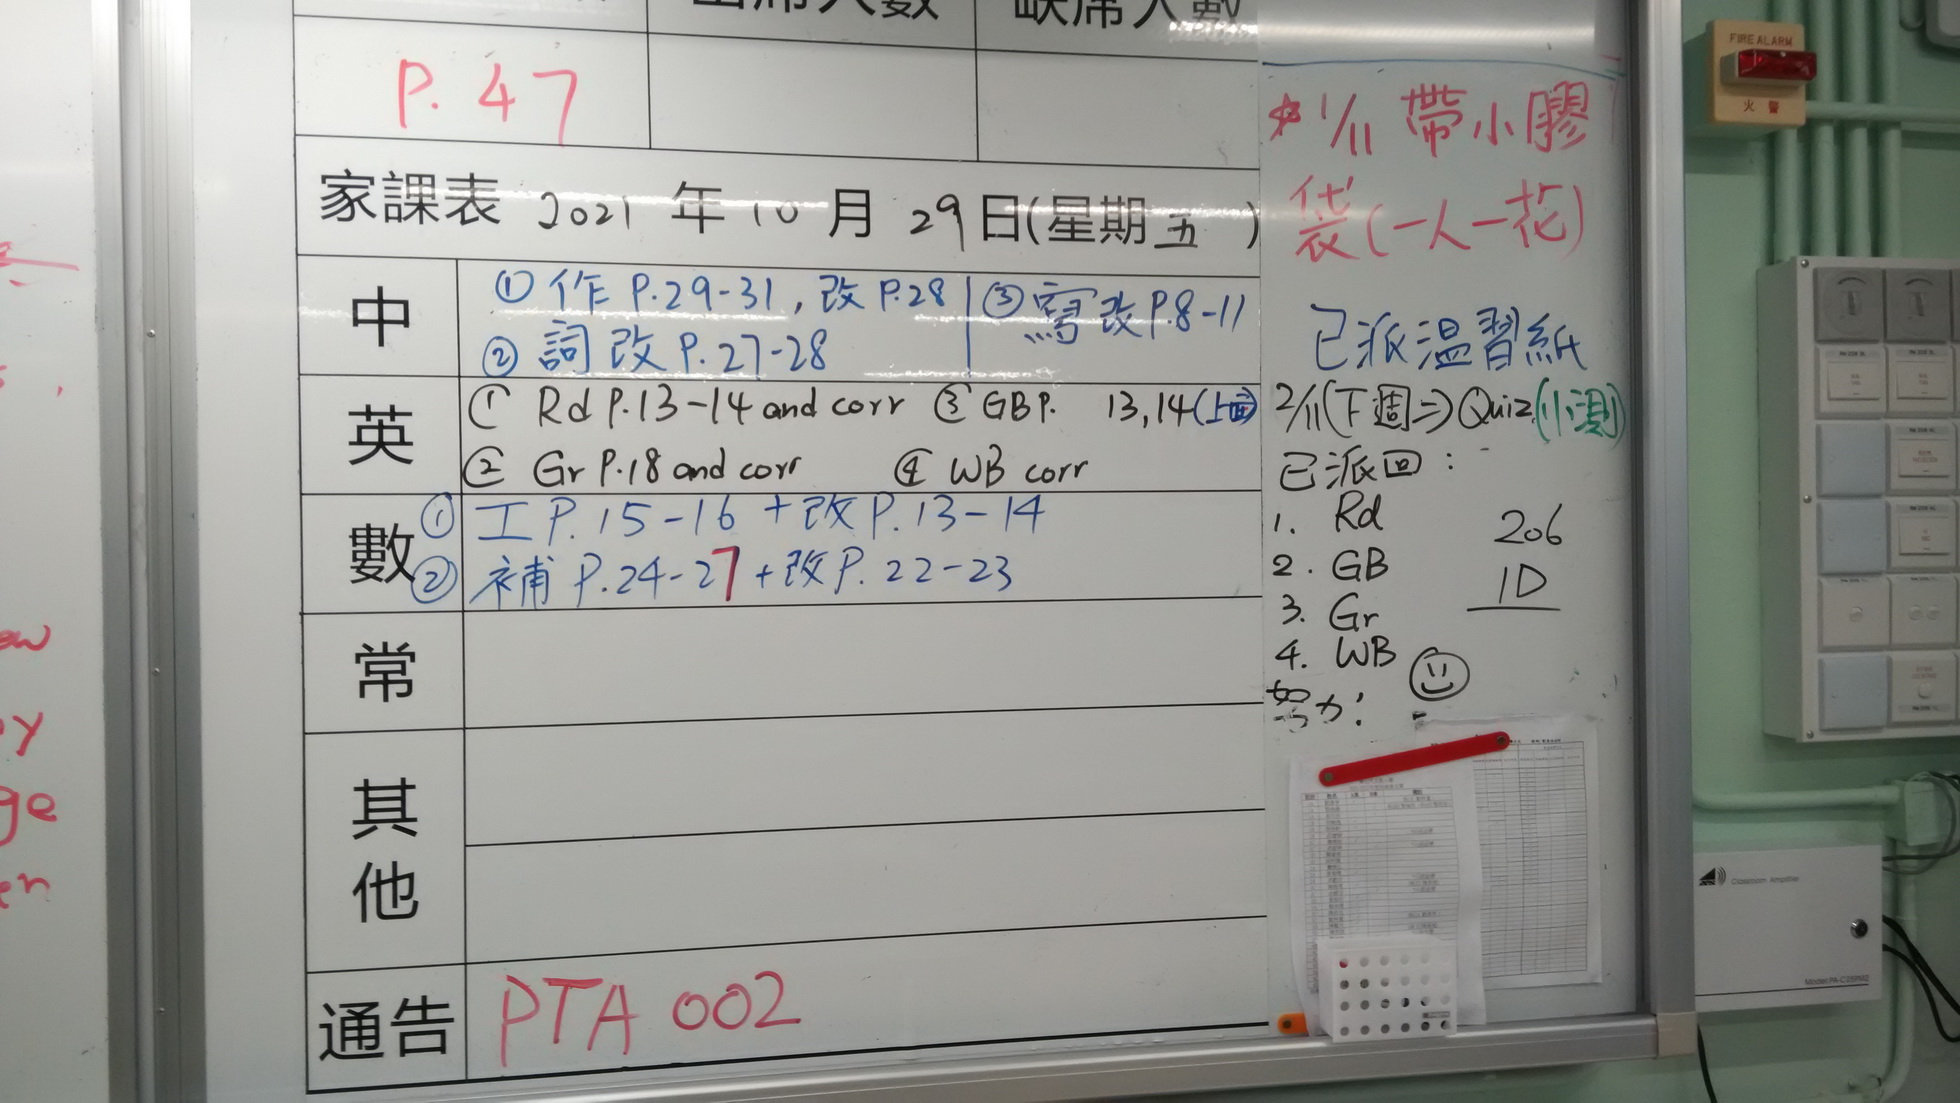 出席人數
缺席人數
P. 47
家課表 2021 年 10 月 29 日(星期五)
中
① 作 P.29-31, 改 P.28
② 詞改 P.27-28
③ 寫改 P.8-11
英
① Rd P.13-14 and corr ③ GB P. 13,14(上面)
② Gr P.18 and corr ④ WB corr
數
① 工 P. 15-16 + 改 P. 13-14
② 補 P.24-27 + 改 P. 22-23
常
其他
通告
PTA 002
* 1/11 帶小膠
袋(一人一花)
已派溫習紙
2/11(下週二) Quiz (小測)
已派回:
1. Rd
2. GB
3. Gr
4. WB
努力!
206
1D
FIRE ALARM
火警
Classroom Amplifier
ow
y
ge
en